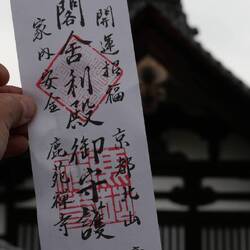 開運招福
閣舎利殿御守護
家内安全
京都北山
鹿苑禅寺